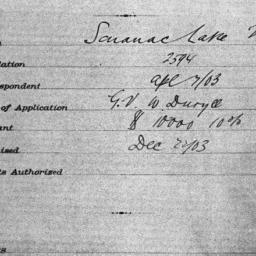 Saranac Lake N
lation 2594
spondent apl 2/03
of Application G. V. W Duryee
ant $ 10000 10%
ised Dec 22/03
ts Authorized